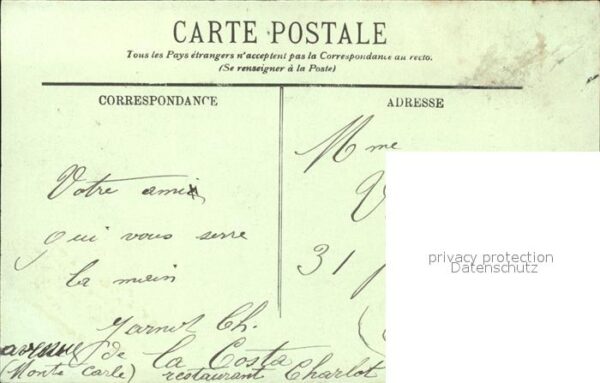 CARTE POSTALE
Tous les Pays étrangers n'acceptent pas la Correspondance au recto.
(Se renseigner à la Poste)
CORRESPONDANCE
Votre amie
qui vous serre
la main
Ch.
avenue de la Costa
(Monte Carle) restaurant Charlot
ADRESSE
Mme
V
31
privacy protection
Datenschutz